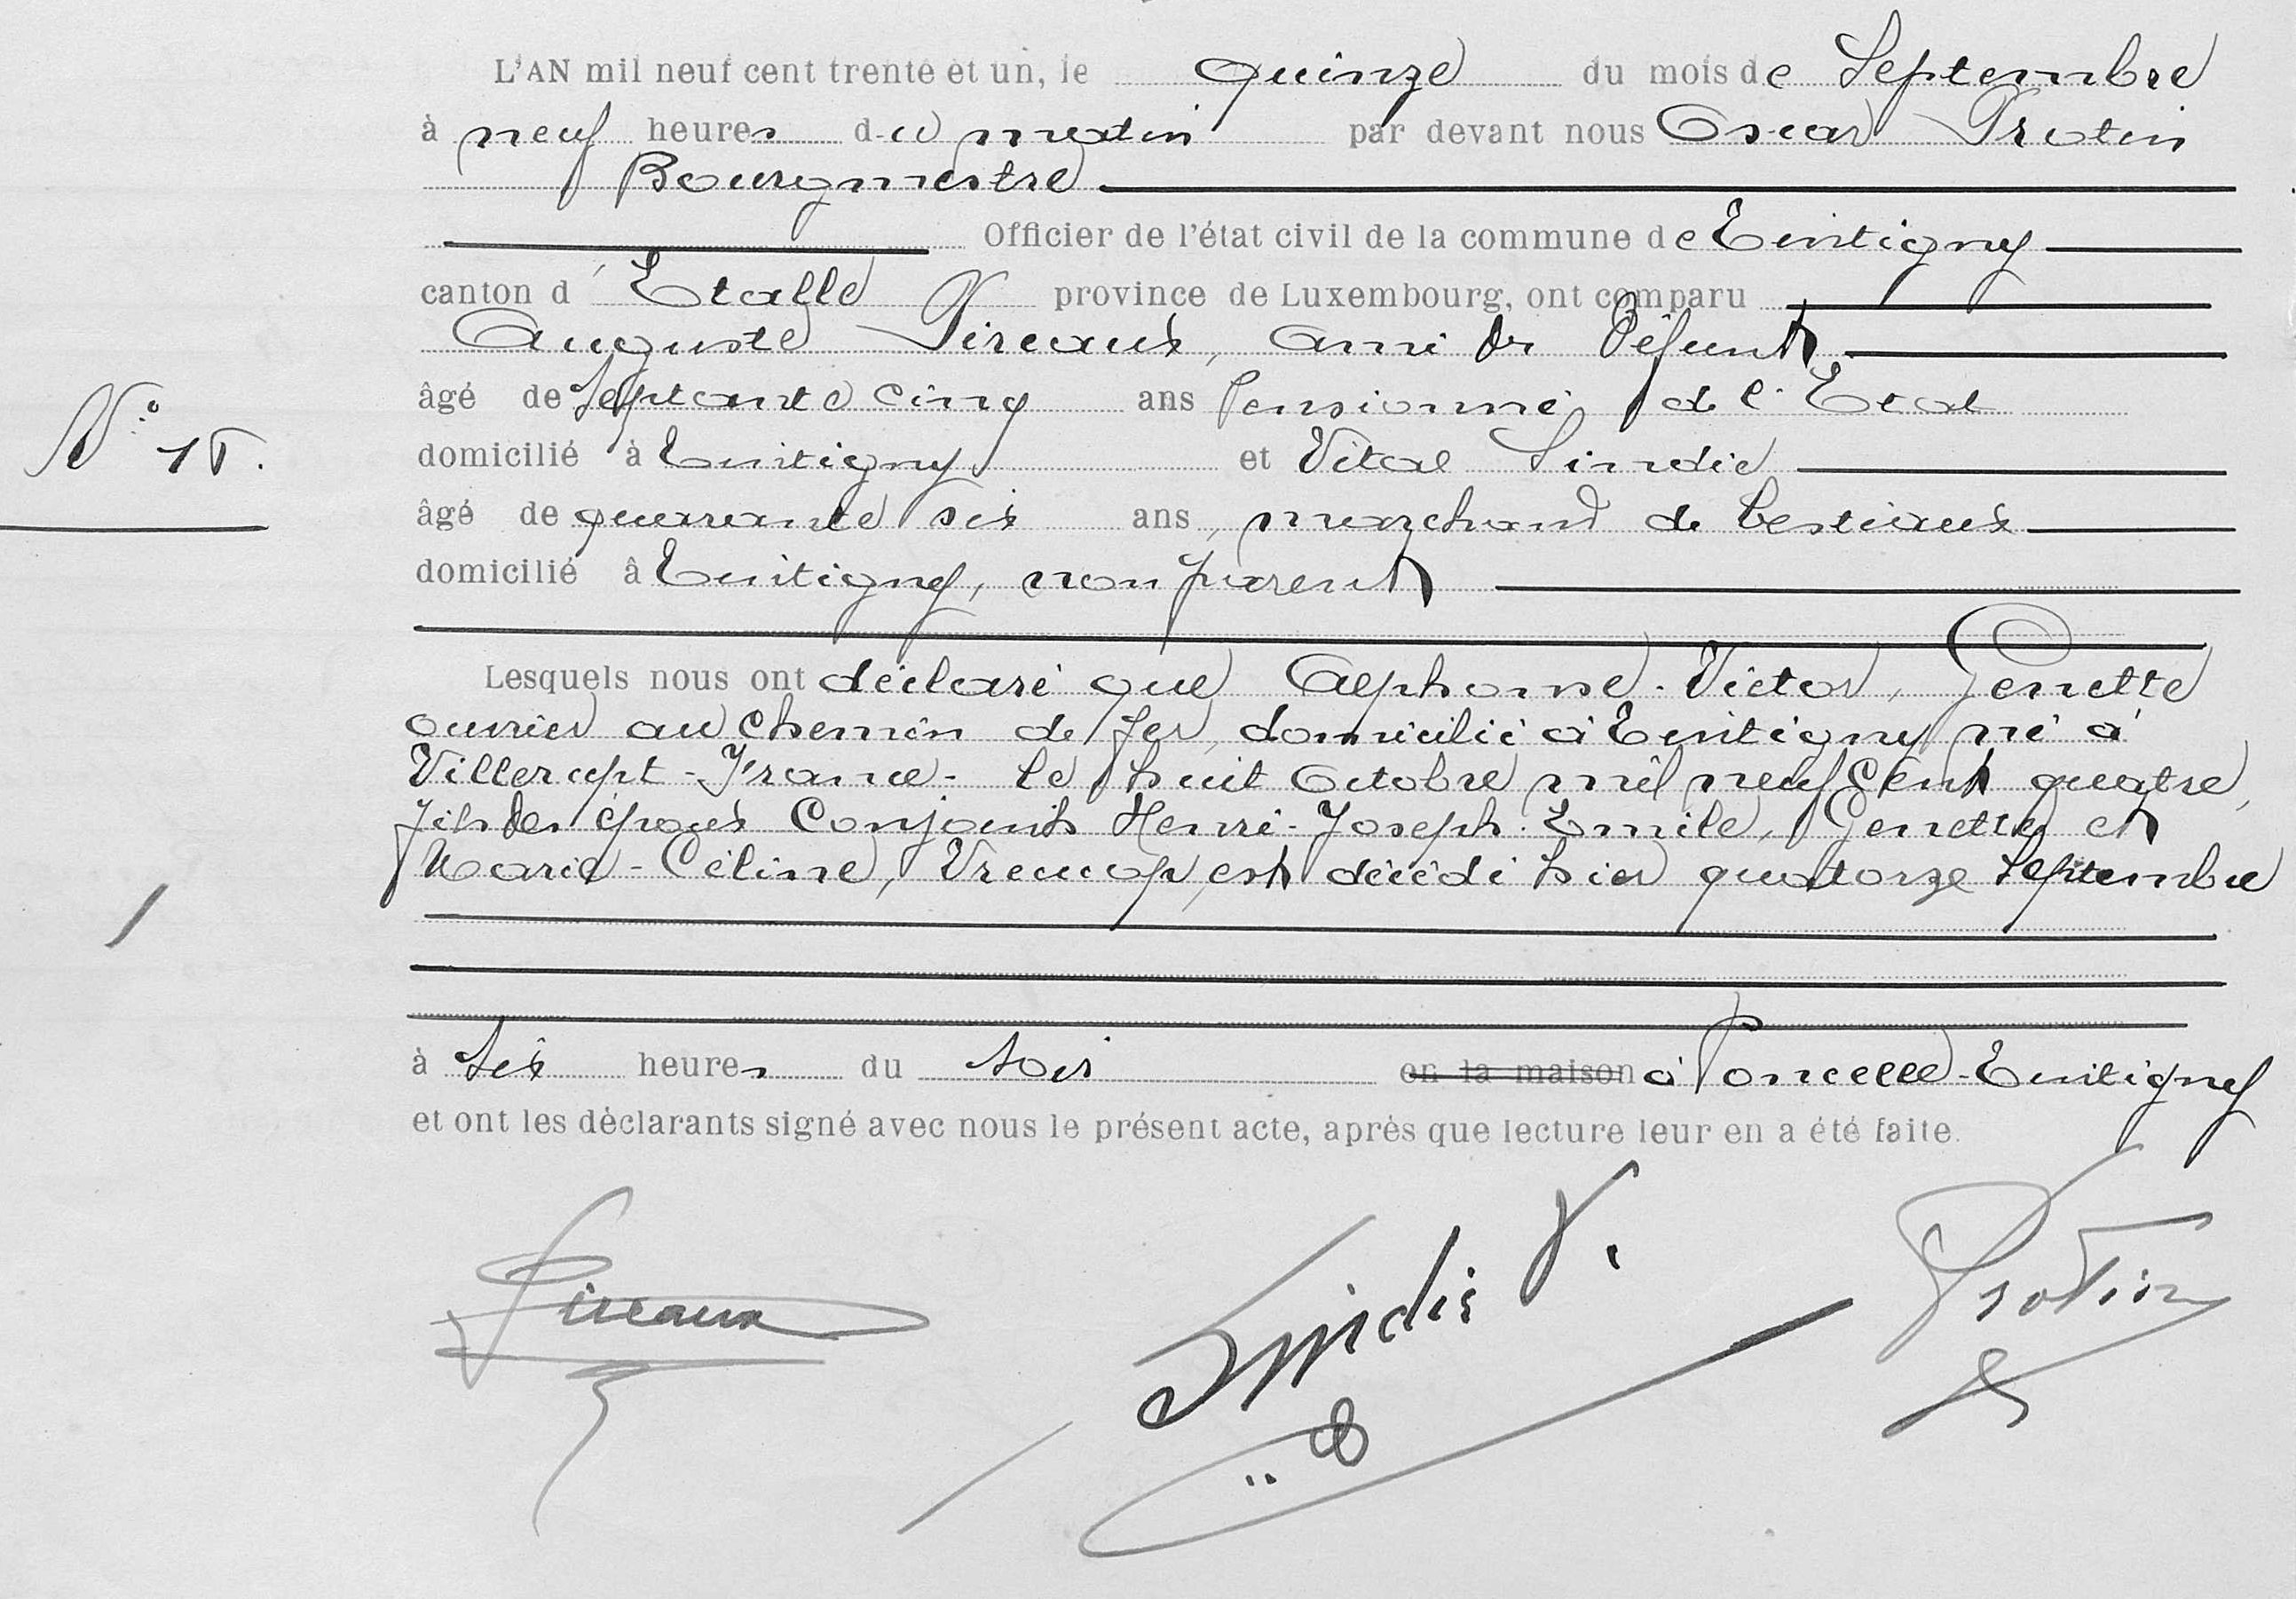 L'AN mil neuf cent trente et un, le quinze du mois de Septembre
à neuf heures du matin par devant nous Oscar Protin
Bourgmestre
Officier de l'état civil de la commune de Tintigny
canton d'Etalle province de Luxembourg, ont comparu
Auguste Pireaux, ami du Défunt
âgé de septante cinq ans Pensionné de l'Etat
N° 15. domicilié à Tintigny et Vital Sindic
âgé de quarante six ans, marchand de bestiaux
domicilié à Tintigny, non parent
Lesquels nous ont déclaré que Alphonse-Victor, Genette
ouvrier au chemin de fer, domicilié à Tintigny né à
Villerupt-France- le huit Octobre mil neuf cent quatre,
fils des époux Conjoints Henri-Joseph-Emile, Genette et
Marie-Céline, est décédé hier quatorze Septembre
à six heures du soir en la maison à Poncelle-Tintigny
et ont les déclarants signé avec nous le présent acte, après que lecture leur en a été faite.
Pireaux Sindic V. Protin